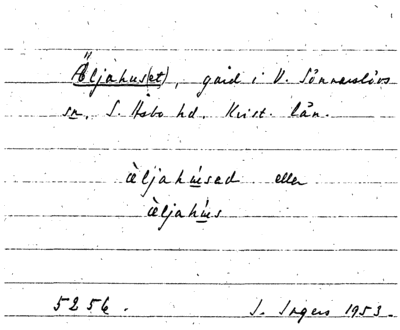 Äljahus(et), gård i V. Sönnarslövs
sn, S. Åsbo hd. Krist. län.
ä̀ljahúsed eller
ä̀ljahús
5256. I. Ingers 1953.